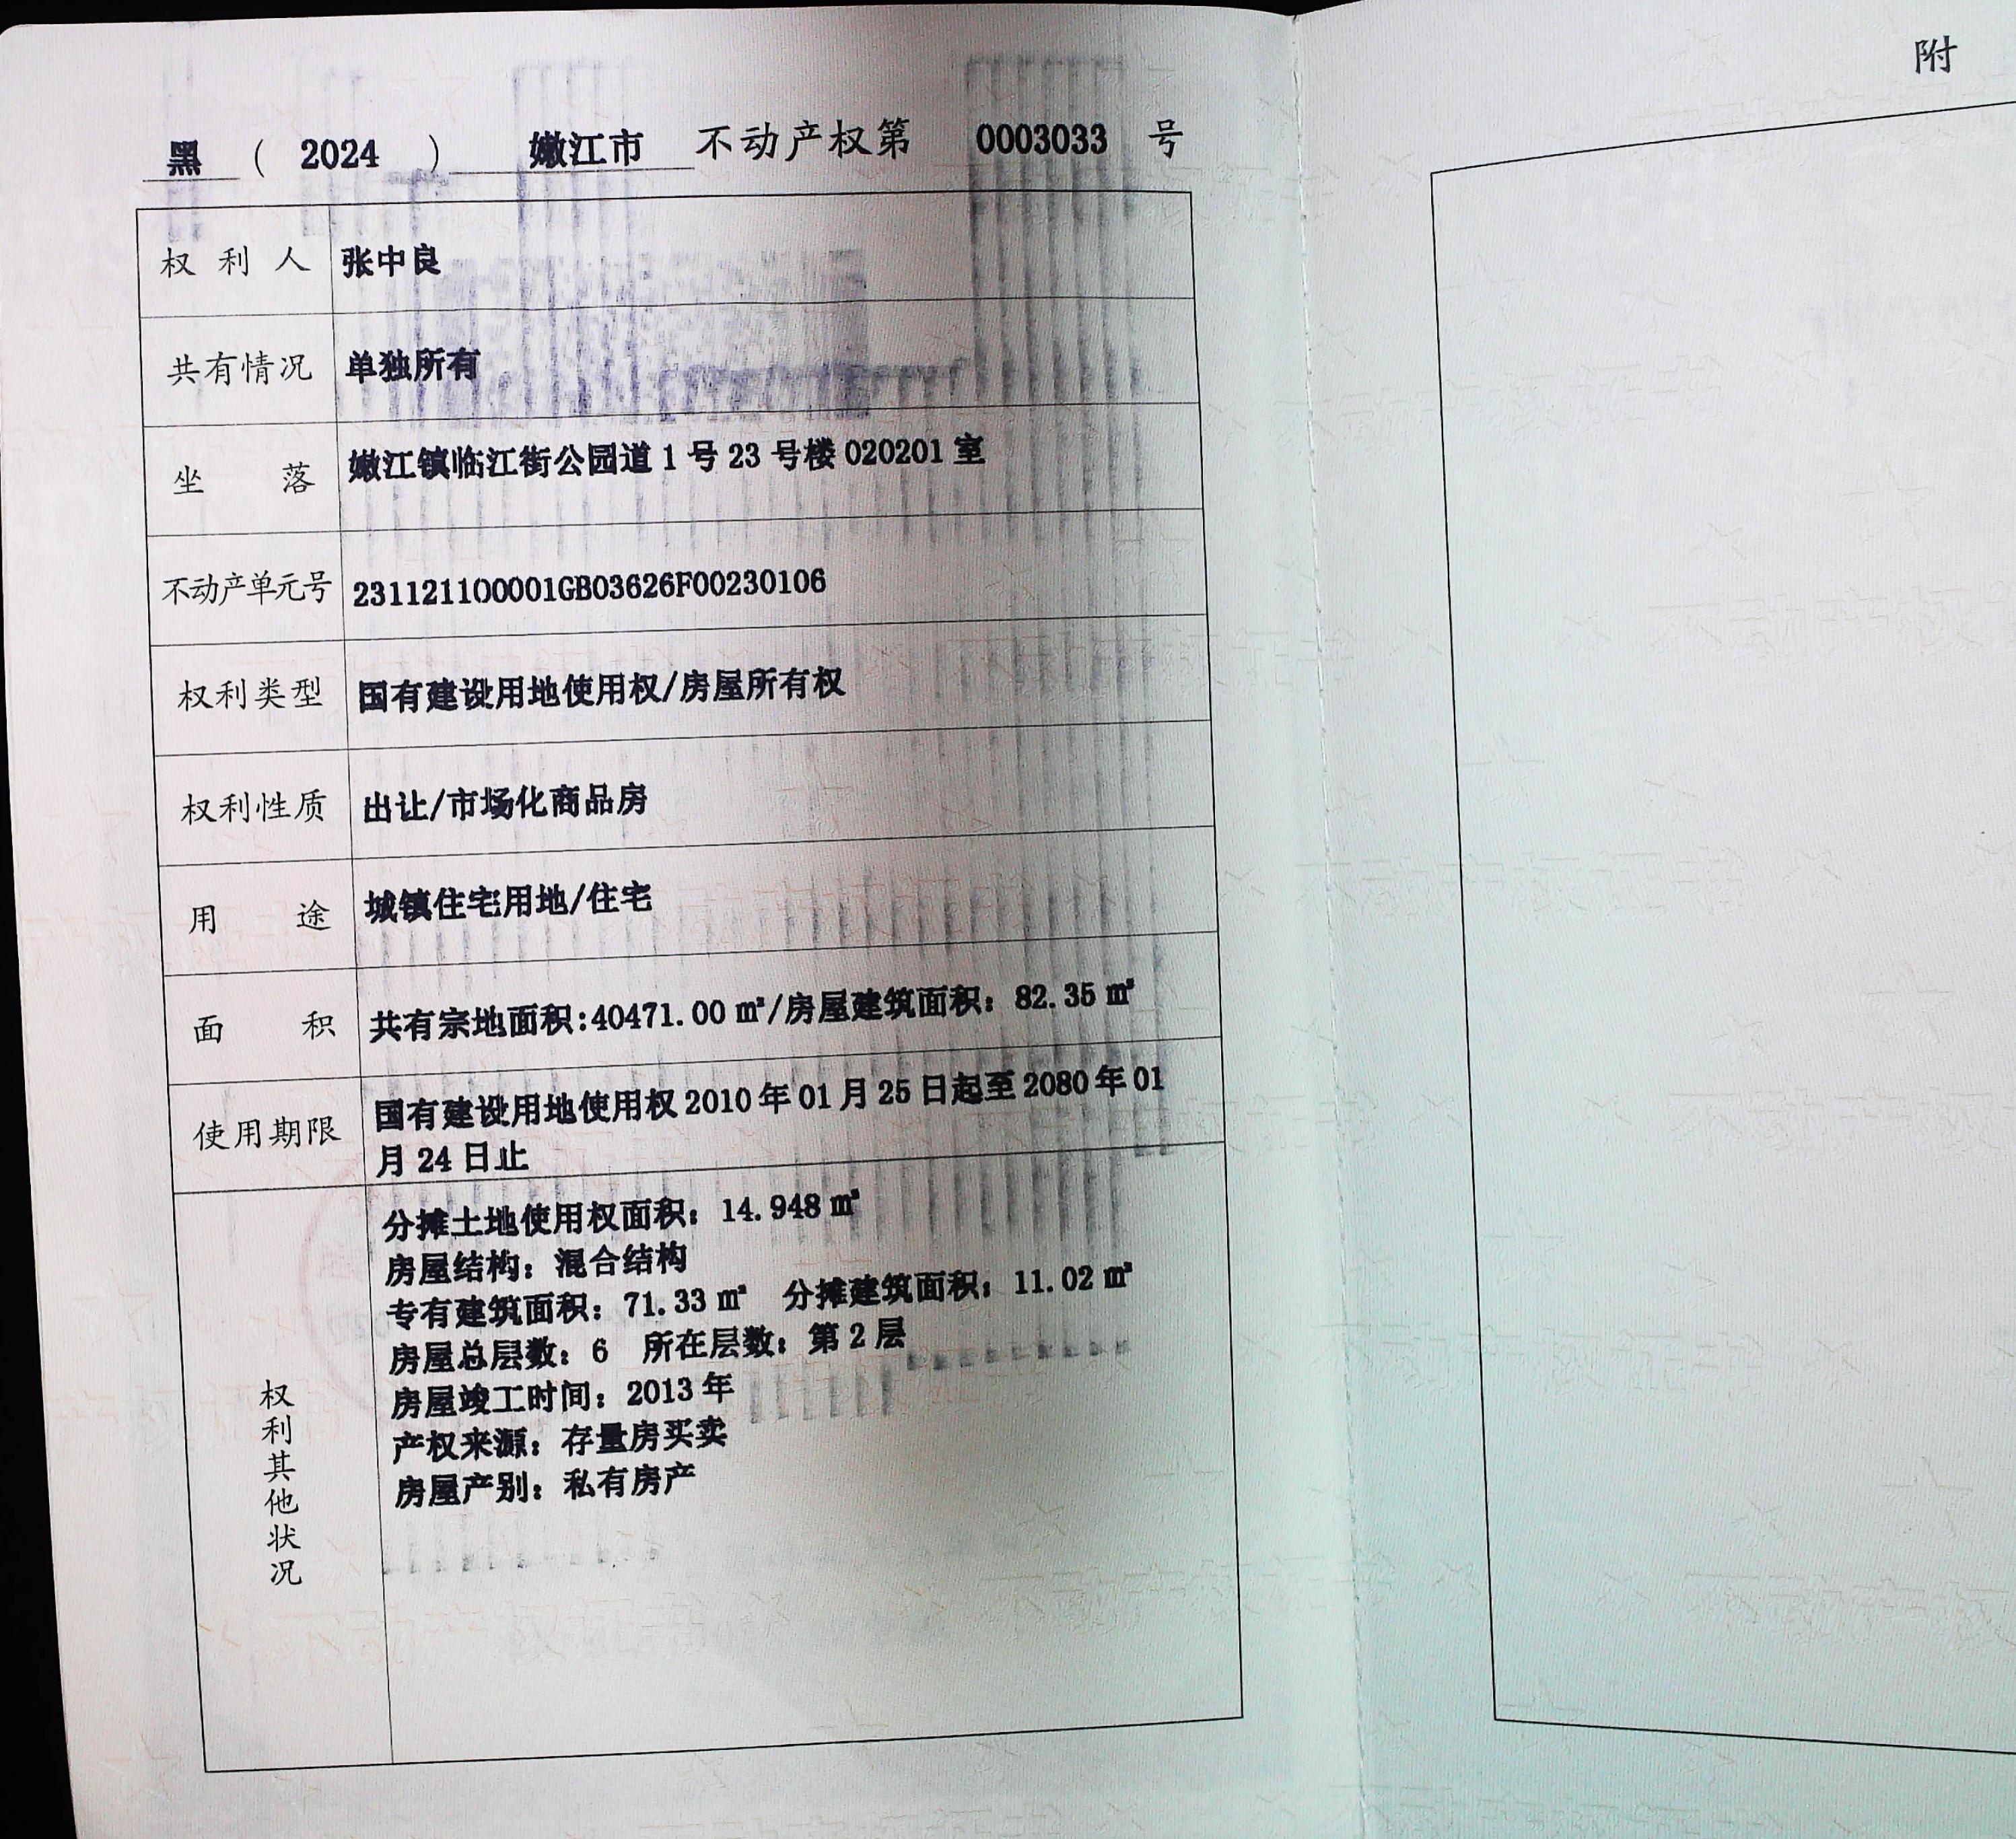 黑 ( 2024 ) 嫩江市 不动产权第 0003033 号
附
权利人 张中良
共有情况 单独所有
坐落 嫩江镇临江街公园道 1 号 23 号楼 020201 室
不动产单元号 231121100001GB03626F00230106
权利类型 国有建设用地使用权/房屋所有权
权利性质 出让/市场化商品房
用途 城镇住宅用地/住宅
面积 共有宗地面积:40471.00 ㎡/房屋建筑面积：82.35 ㎡
使用期限 国有建设用地使用权 2010 年 01 月 25 日起至 2080 年 01
月 24 日止
权利其他状况
分摊土地使用权面积：14.948 ㎡
房屋结构：混合结构
专有建筑面积：71.33 ㎡ 分摊建筑面积：11.02 ㎡
房屋总层数：6 所在层数：第 2 层
房屋竣工时间：2013 年
产权来源：存量房买卖
房屋产别：私有房产